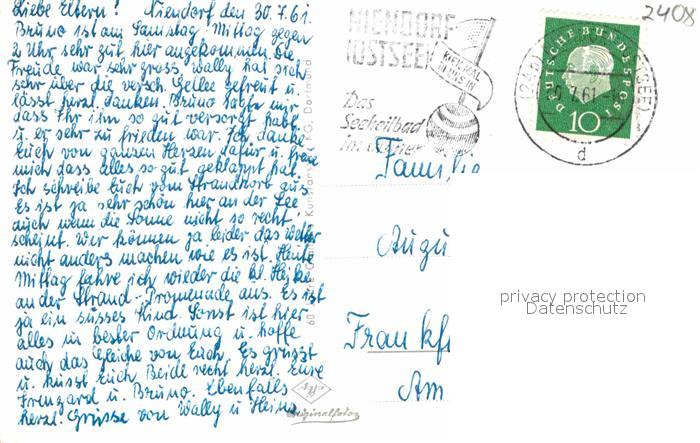 Liebe Eltern! Niendorf den 30.7.61.
Bruno ist am Samstag Mittag gegen
2 Uhr sehr gut hier angekommen. Die
Freude war sehr gross, Wally hat sich
sehr über die versch. Gellee gefreut u.
lässt herzl. danken. Bruno sagte mir
dass Ihr ihn so gut versorgt habt
u. er sehr zu frieden war. Ich danke
Euch von ganzem Herzen dafür u. freue
mich dass alles so gut geklappt hat.
Ich schreibe Euch vom Strandkorb aus
Es ist ja sehr schön hier an der See
auch wenn die Sonne nicht so recht
scheint. Wir können ja leider das Wetter
nicht anders machen wie es ist. Heute
Mittag fahre ich wieder die kl. Heike
an der Strand-Promenade aus. Es ist
ja ein süsses Kind. Sonst ist hier
alles in bester Ordnung u. hoffe
auch das Gleiche von Euch. Es grüsst
u. küsst Euch Beide recht herzl. Eure
u. Bruno. Ebenfalls
herzl. Grüsse von Wally u. Heinz
NIENDORF
(OSTSEE)
Das
Seeheilbad
DEUTSCHE BUNDESPOST
10
7.61
d
2408
Famili
Augu
Frankf
Am
60
Dortmund
Originalfoto
privacy protection
Datenschutz